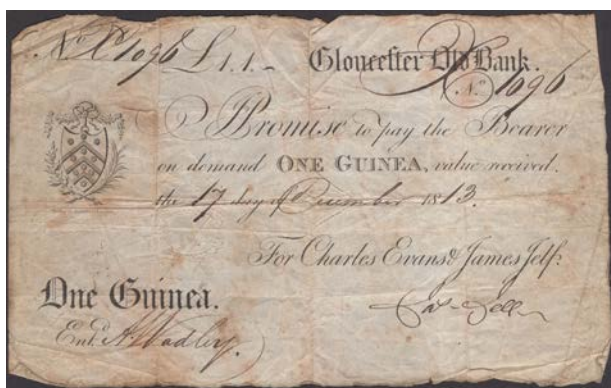 No X 1096 £1.1.- Gloucester Old Bank.
No X 1096
I Promise to pay the Bearer
on demand ONE GUINEA, value received.
the 17 day of December 1813.
For Charles Evans & James Jelf.
One Guinea.
Entd.